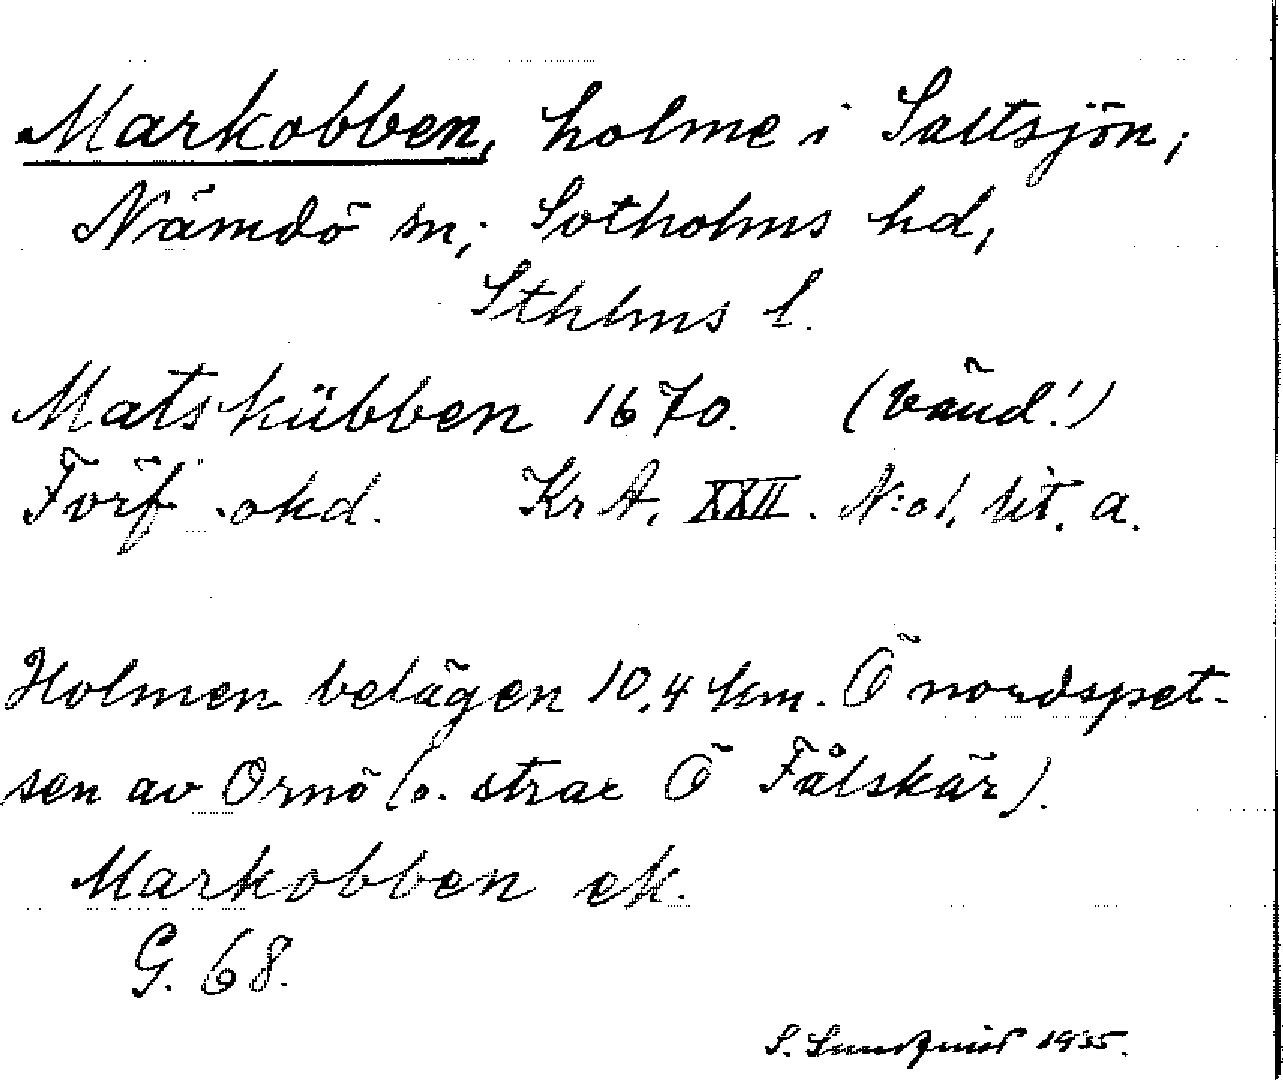 Markobben, holme i Saltsjön;
Nämdö sn; Sotholms hd,
Sthlms l.
Matskübben 1670. (vänd!)
Förf. okd. Kr A, XXII. N:o 1, lit. a.
Holmen belägen 10,4 km. Ö nordspet-
sen av Ornö (o. strax Ö Fålskär).
Markobben ek.
G. 68.
S. Lundquist 1935.